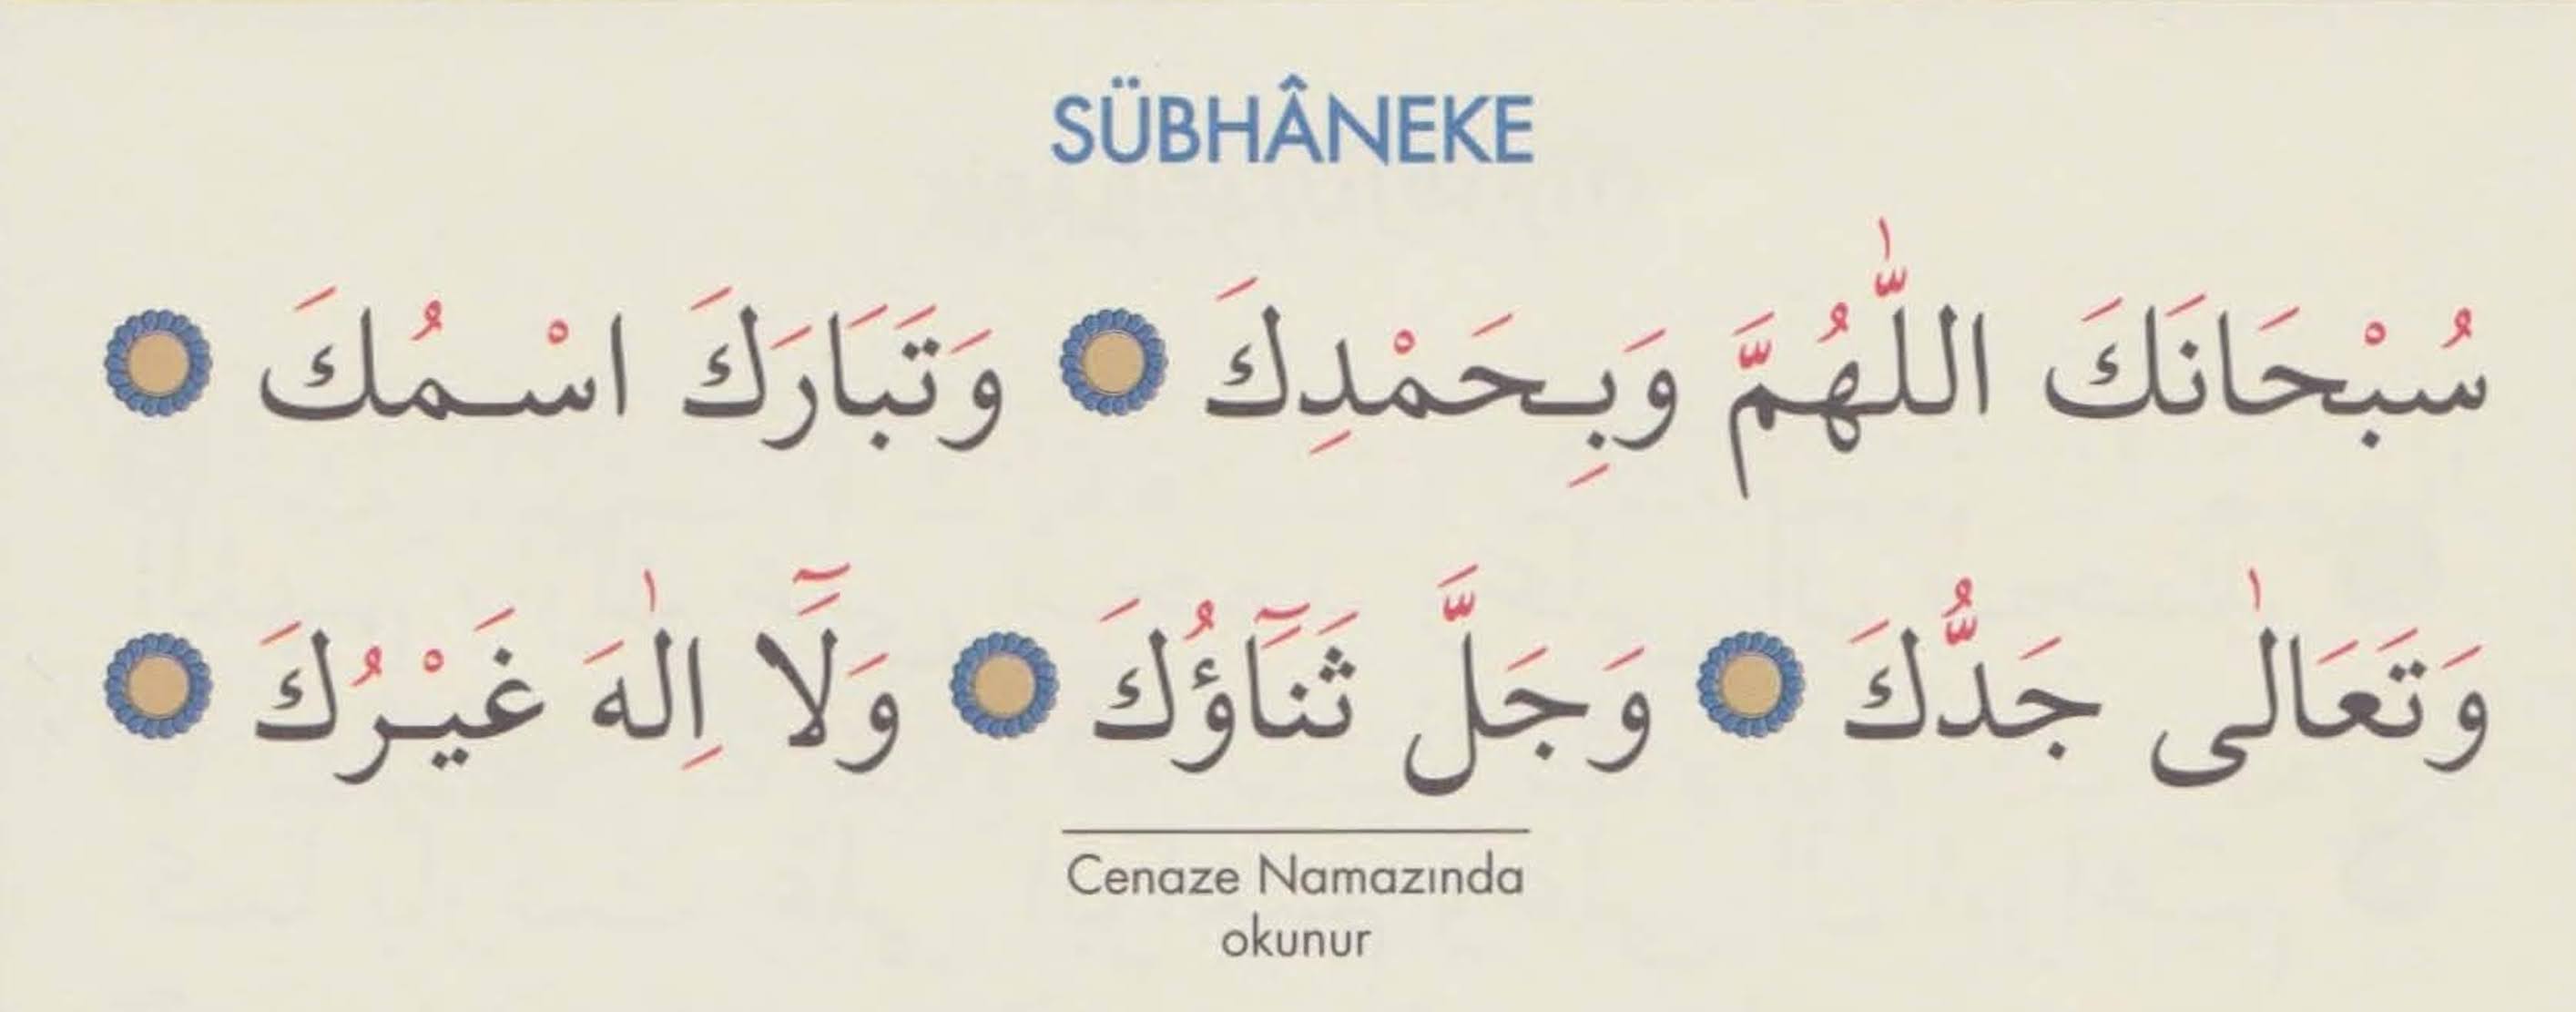 SÜBHÂNEKE
سُبْحَانَكَ اللّٰهُمَّ وَبِحَمْدِكَ ۝ وَتَبَارَكَ اسْمُكَ ۝
وَتَعَالٰى جَدُّكَ ۝ وَجَلَّ ثَنَآؤُكَ ۝ وَلَٓا اِلٰهَ غَيْرُكَ ۝
Cenaze Namazında
okunur